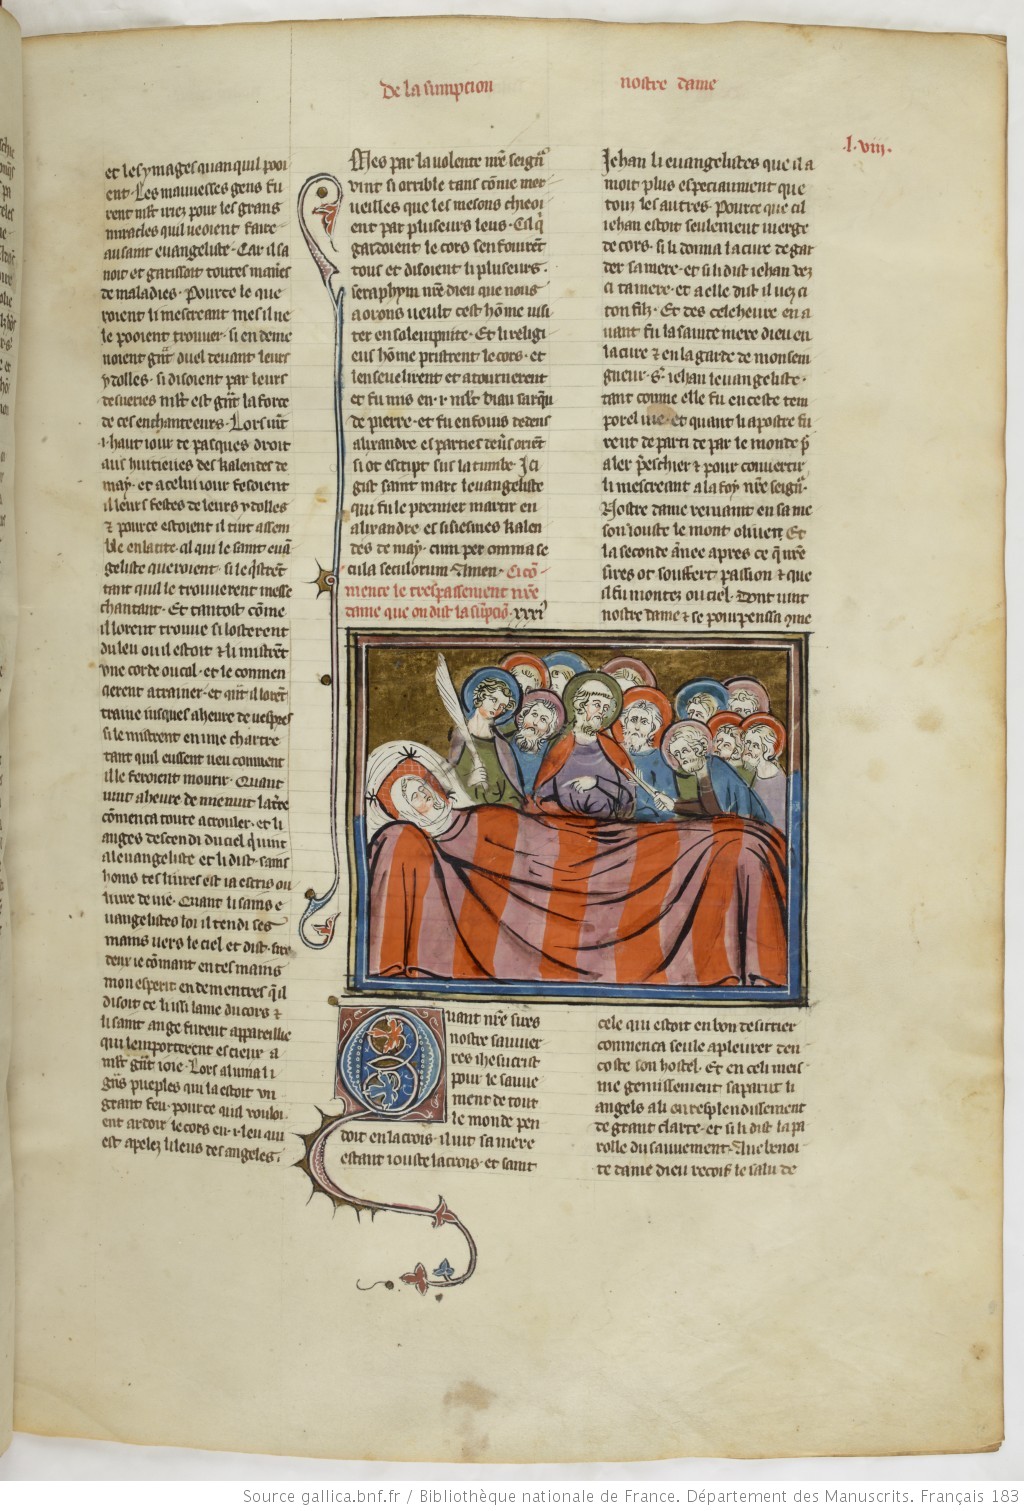 De la sumpcion nostre dame
.l.viii.
et les ymages quan quil pooi
ent. Les mauveses gens fu
rent mlt iriez pour les grans
miracles quil veoient faire
au saint euangeliste. Car il sa
noit et garissoit toutes manies
de maladies. Pource le que
roient li mescreant mes il ne
le pooient trouver. si en deme
noient gnt duel devant leurs
ydolles. si disoient par leurs
desueries mlt est gnt la force
de ces enchanteurs. Lors vint
.i. haut iour de pasques droit
aus huitieves des kalendes de
may. et a celui iour fesoient
il leurs festes de leurs ydolles
et pource estoient il tint assem
ble en la cite. al qui le saint eua
geliste queroient. si le qistrent
tant quil le trouverent messe
chantant. Et tantost come
il lorent trouve si losterent
du leu ou il estoit et li mistrent
vne corde ou col. et le commen
cierent a trainer. et qnt il lorent
traine iusques a heure de vespres
si le mistrent en une chartre
tant quil eussent veu comment
il le feroient mourir. Quant
vint a heure de mienuit la tre
comenca toute a crouler. et li
anges descendi du ciel q vint
a leuangeliste et li dist. sains
homs tes livres est ia escris ou
livre de vie. Quant li sains e
uangelistes loi il tendi ses
mains vers le ciel et dist. sire
dieu ie comant en tes mains
mon esperit endementres qil
disoit ce li issi lame du cors et
li saint ange furent appareillie
qui lemporterent es cieux a
mlt gnt ioie. Lors aluma li
gns pueples qui la estoit vn
grant feu. pource quil vouloi
ent ardoir le cors en .i. leu qui
est apelez li leus des angeles.
Mes par la volente nre seignr
vint si orrible tans come mer
veilles que les mesons cheoi
ent par pluseurs leus. Cil q
gardoient le cors sen fouirent
tous et disoient li pluseurs.
seraphym nre dieu que nous
aorons veult cest home visi
ter en solempnite. Et li religi
eus home pristrent le cors. et
lenseuelirent et atournerent
et fu mis en .i. mlt biau sarqu
de pierre. et fu enfouis dedens
alixandre es parties devs orient
si ot escript sus la tumbe. Ici
gist saint marc leuangeliste
qui fu le premier martir en
alixandre es sisiesmes kalen
des de may. cum per omnia se
cula seculorum Amen. Ci co
mence le trespassement nre
dame que on dist la supcio. xxxi
Quant nre sires
nostre sauveer
res ihesucrist
pour le sauve
ment de tout
le monde pen
doit en la crois. il vit sa mere
estant iouste la crois. et saint
Jehan li euangelistes que il a
moit plus especiaument que
touz les autres. Pource que cil
iehan estoit seulement vierge
de cors. si li donna la cure de gar
der sa mere. et si li dist iehan vez
ci ta mere. et a elle dist il vez ci
ton filz. Et des cele heure en a
vant fu la sainte mere dieu en
la cure et en la garde de monsei
gneur st iehan leuangeliste.
tant comme elle fu en ceste tem
porel vie. et quant li apostre fu
rent departi de par le monde p
aler preschier et pour convertir
li mescreant a la foy nre seignr.
Nostre dame remaint en sa me
son iouste le mont olivet. Et
la seconde annee apres ce q nre
sires ot souffert passion et que
il fu montez ou ciel. Dont vint
nostre dame et se pourpenssa qme
cele qui estoit en bon desirrier
commenca seule a pleurer den
coste son hostel. Et en celi meis
me gemissement saparut li
angels a li en resplendissement
de grant clarte. et si li dist la pa
rolle du sauvement. Ave benoi
te dame dieu recoif le salu de
Source gallica.bnf.fr / Bibliothèque nationale de France. Département des Manuscrits. Français 183